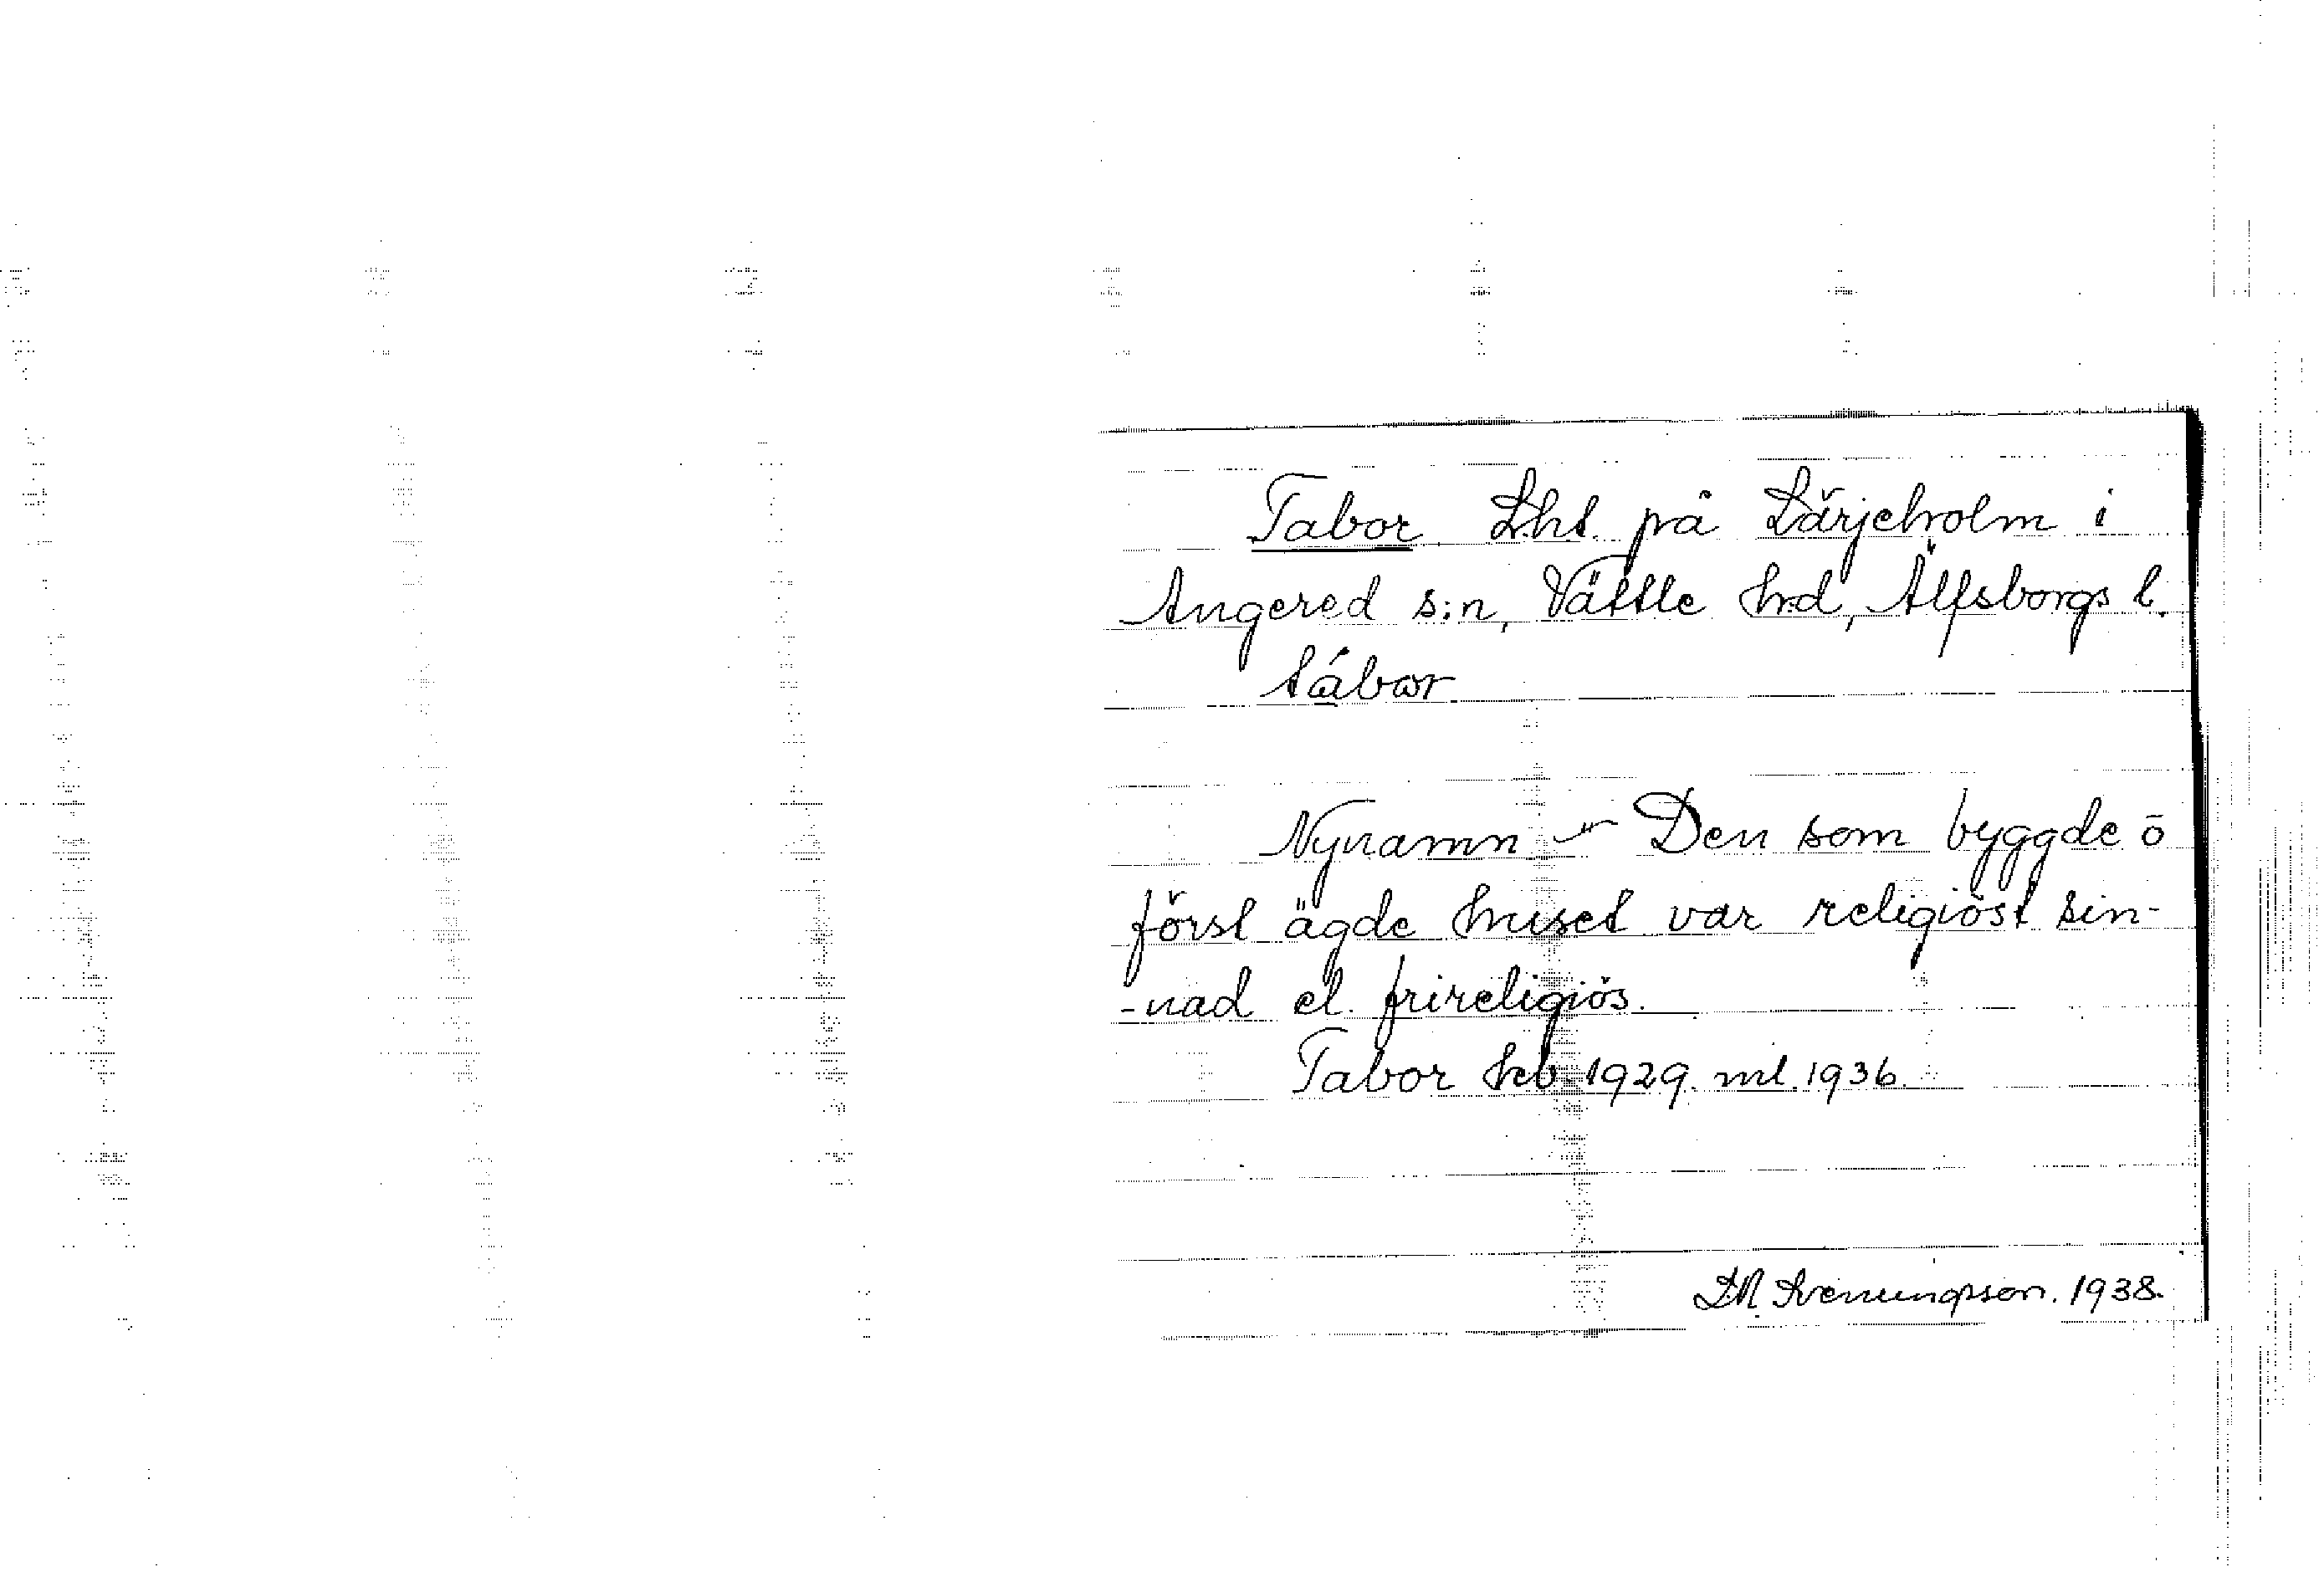 Tabor Lht. på Lärjeholm i
Angered s:n, Vättle hrd, Älfsborgs l.
tábωr
Nynamn – Den som byggde ō
först ägde huset var religiöst sin-
-nad el. frireligiös.
Tabor hcb. 1929. ml. 1936.
Svenungsson. 1938.